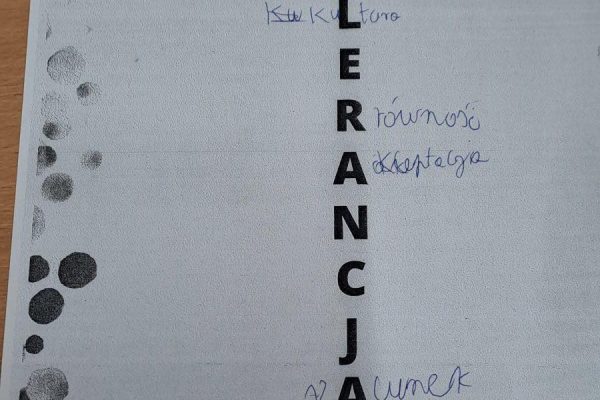 Ku L tura
E
R równość
A akceptacja
N
C
J
A cunek